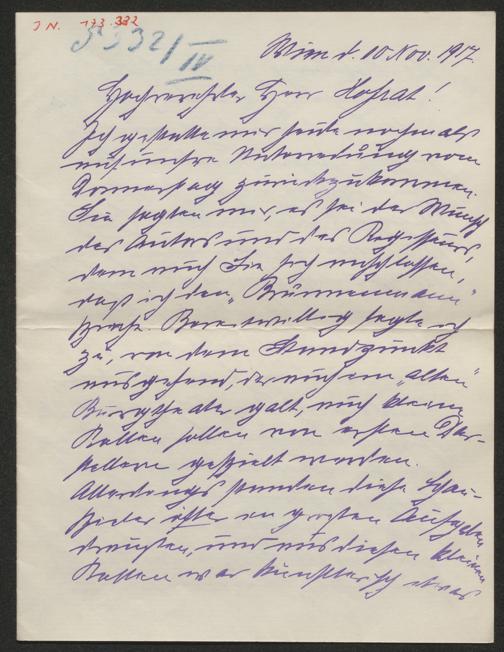 J.N. 173.332
5332/IV
Wien d. 10 Nov. 1917.
Hochverehrter Herr Hofrat!
Ich gestatte mir heute nochmals
auf unsre Unterredung vom
Donnerstag zurückzukommen.
Sie sagten mir, es sei der Wunsch
des Autors und des Regisseurs,
dem auch Sie sich anschlossen,
daß ich den „Brünnenmann"
spiele. Bereitwillig sagte ich
zu, von dem Standpunkt
ausgehend, der auch im „alten"
Burgtheater galt, auch kleine
Rollen sollen von ersten Dar-
stellern gespielt werden.
Allerdings standen diese Schau-
spieler öfter an großen Aufgaben
draußen, und aus diesen kleinen
Rollen war künstlerisch etwas